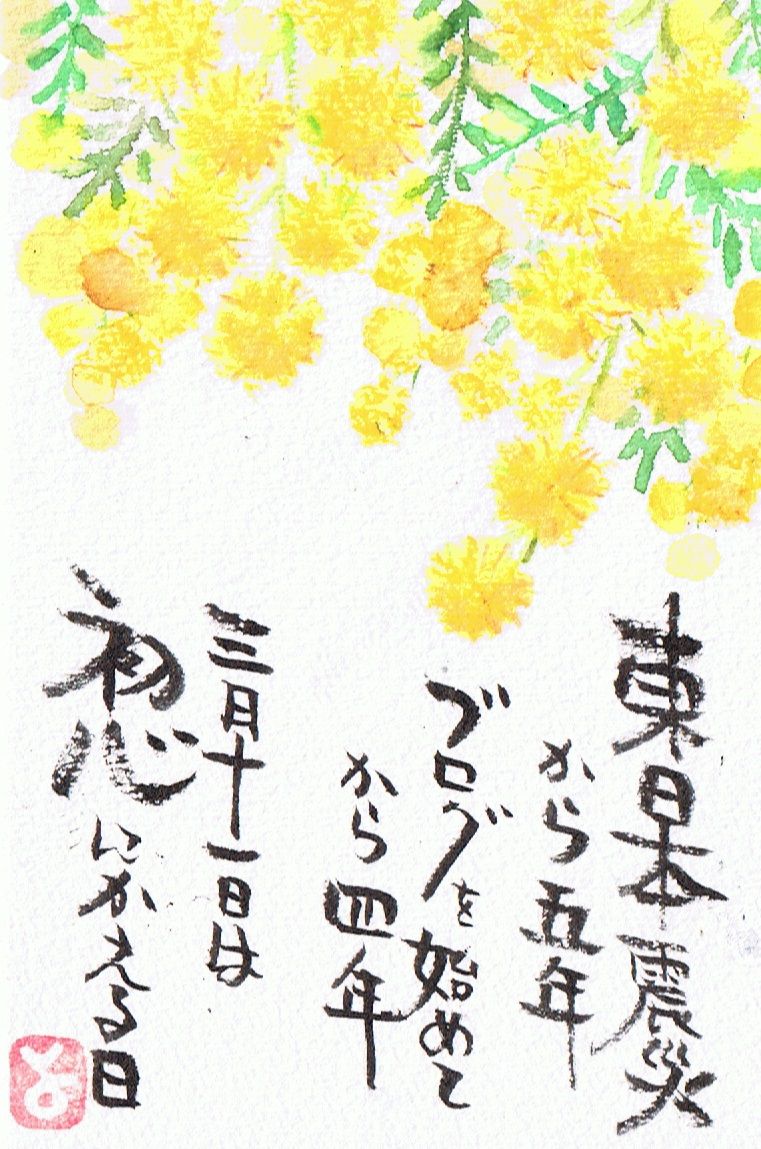 東日本震災
から五年
ブログを始めて
から四年
三月十一日は
初心にかえる日
と